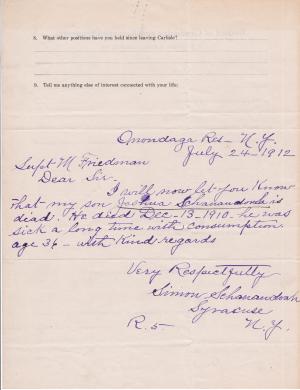 8. What other positions have you held since leaving Carlisle?
9. Tell me anything else of interest connected with your life:
Onondaga Res- N.Y.
July 24-1912
Supt M Friedman
Dear Sir-
I will now let you Know
that my son Joshua Schanandoah is
diad. He died Dec-13-1910. he was
sick a long time with consumption
age 36 - with Kind regards
Very Respectfully
Simon Schanandoah
Syracuse
R. 5- N.Y.